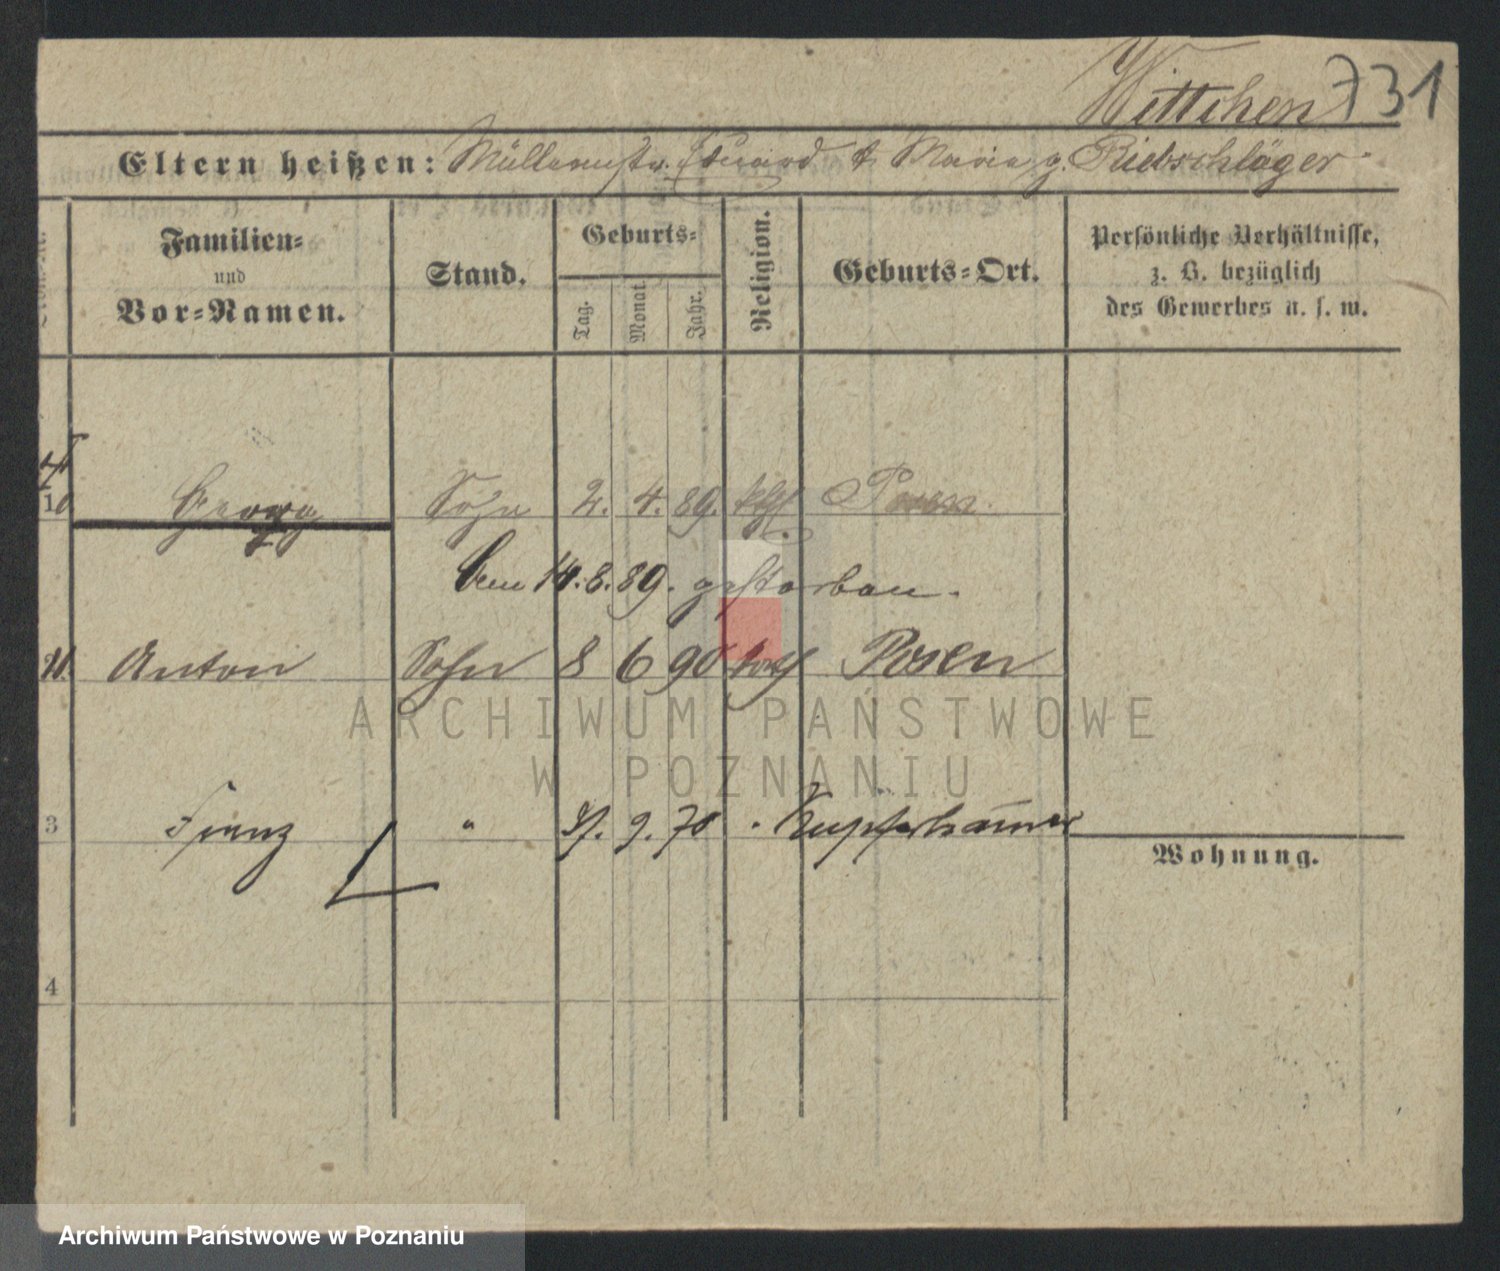 Wittchen 731
Eltern heißen: Müllermstr. Eduard & Marie g. Riebschläger
Familien-
und
Vor-Namen.
Stand.
Geburts-
Tag.
Monat.
Jahr.
Religion.
Geburts-Ort.
Persönliche Verhältnisse,
z. B. bezüglich
des Gewerbes u. s. w.
10 Georg Sohn 2. 4. 89. kth. Posen.
14. 8. 89. gestorben.
Anton Sohn 8 6 90 kath Posen
ARCHIWUM PAŃSTWOWE
W POZNANIU
3 Franz " 9. 70 " Kupferhammer
Wohnung.
4
Archiwum Państwowe w Poznaniu